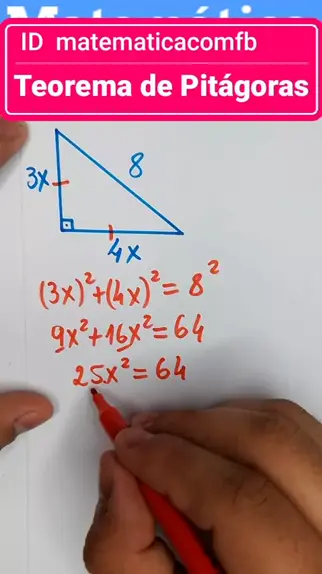 Matemática
ID matematicacomfb
Teorema de Pitágoras
3x
8
4x
(3x)²+(4x)²=8²
9x²+16x²=64
25x²=64